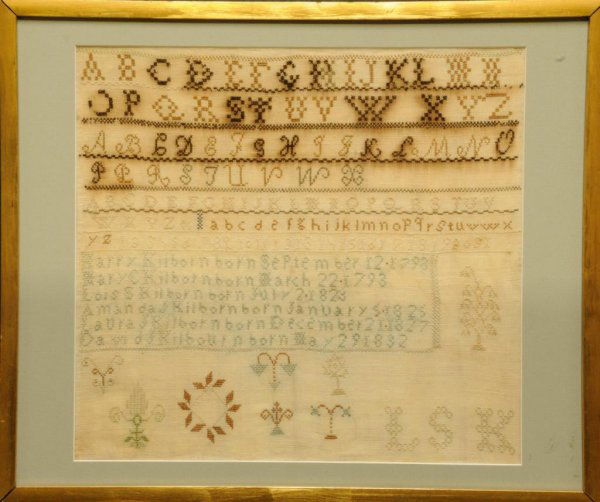 A B C D E F G H I J K L M N
O P Q R S T U V W X Y Z
A B C D E F G H I J K L M N O
P Q R S T U V W X
A B C D E F G H I J K L M N O P Q R S T U V
a b c d e f g h i j k l m n o p q r s t u v w x
y z
Harry Kilborn born September 12 1798
Mary C Kilborn born March 22 1793
Lois S Kilborn born July 2 1823
Amanda J Kilborn born January 5 1825
Laura J Kilborn born December 21 1827
David J Kilbourn born May 29 1832
L S K